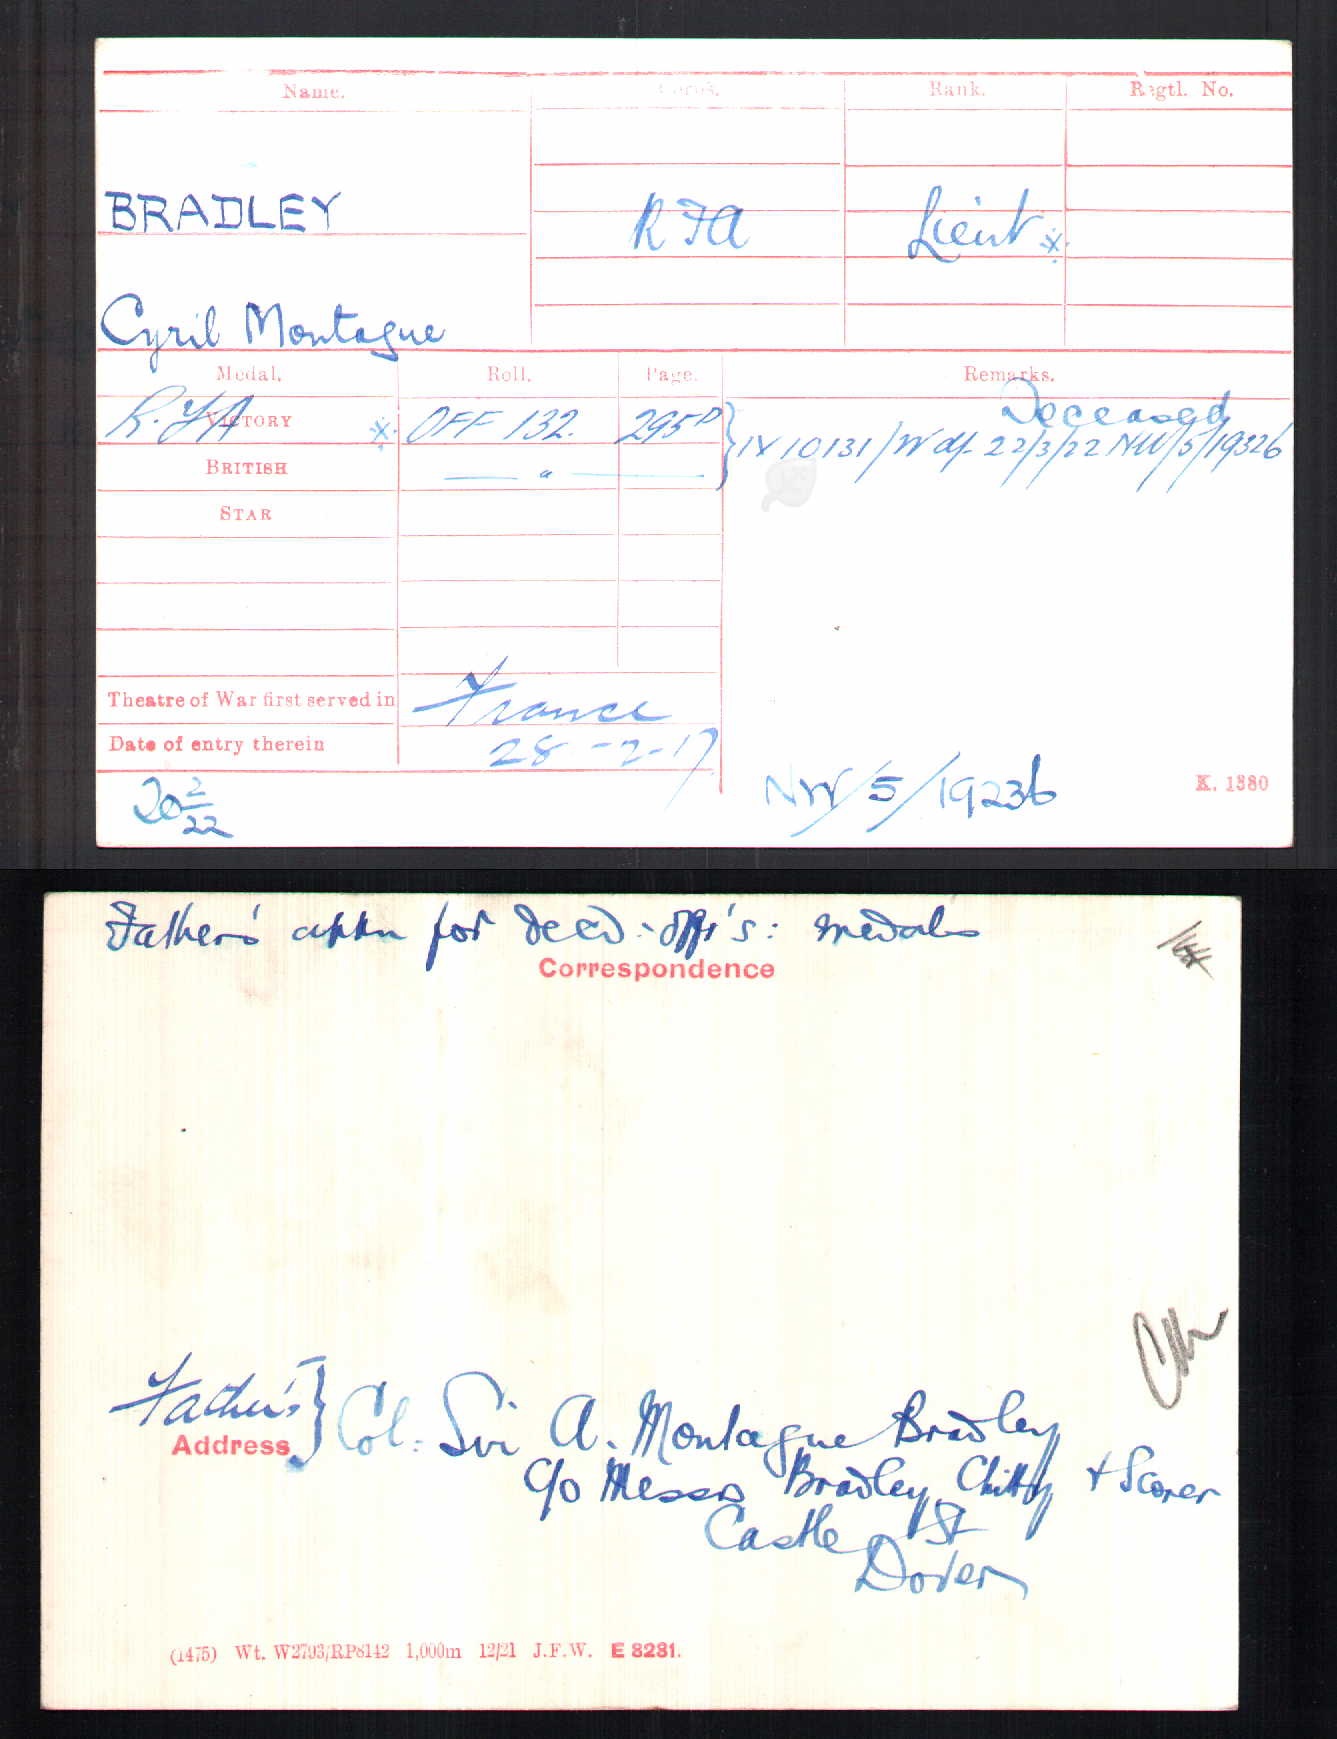 Name. Corps. Rank. Regtl. No.
BRADLEY
R F A Lieut ※
Cyril Montague
Medal. Roll. Page. Remarks.
Deceased
R.F.A VICTORY ※ OFF 132. 295D } IV 10131/W df. 22/3/22 NW/5/19326
BRITISH — " —
STAR
Theatre of War first served in France
Date of entry therein 28-2-17
20 2/22
NW/5/19236 K. 1380
Father's appn for decd: offr's: medals
Correspondence
Father's } Col: Sir A. Montague Bradley
Address
c/o Messrs Bradley, Chitty + Scorer
Castle St
Dover
(1475) Wt. W2793/RP8142 1,000m 12/21 J.F.W. E 8281.